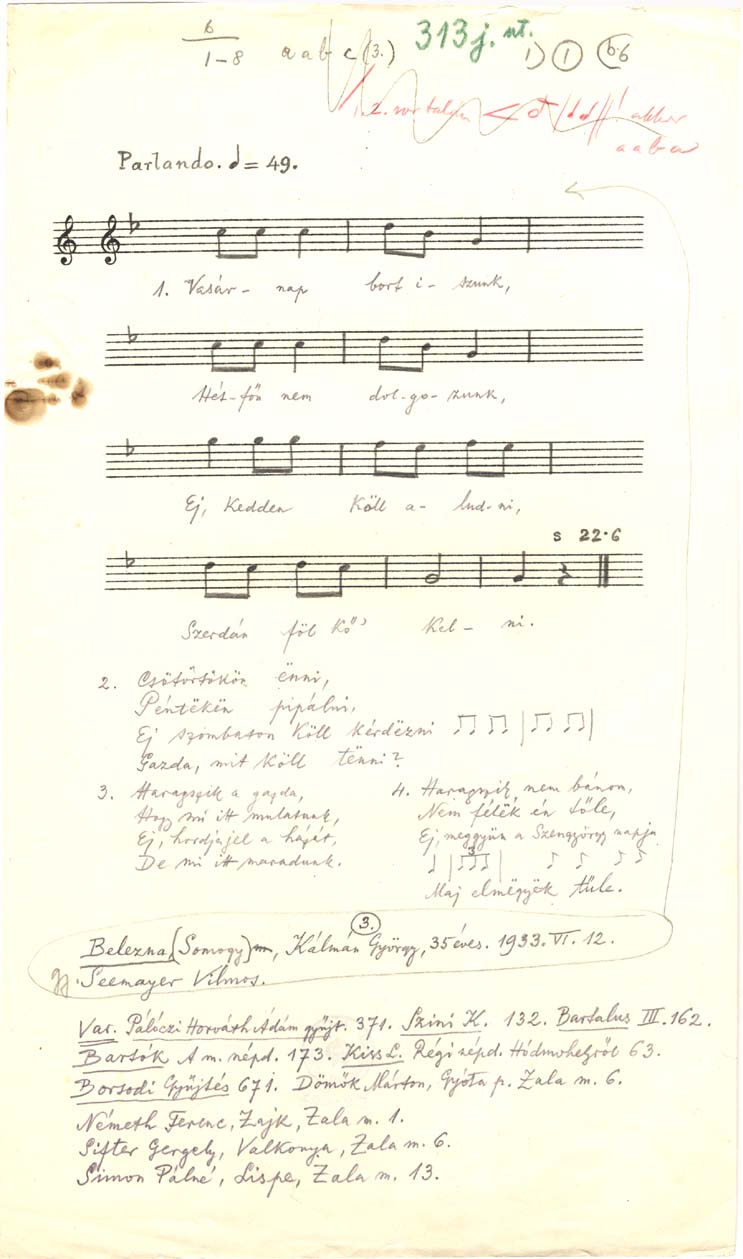 6
1-8 a a b c (3.) 313 j. nt. 1) 1 b6
1.2. akkor
a a b a
Parlando. = 49.
1. Vasár- nap bort i- szunk,
Hét-főn nem dol-go-zunk,
Ej, Kedden Köll a- lud-ni,
s 22·6
Szerdán föl kő' Kel- ni.
2. Csötörtökön ënni,
Péntëkën pipálni,
Ej szombaton Köll kérdëzni
Gazda, mit Köll tënni?
3. Haragszik a gazda,
Hogy mi itt mulatunk,
Ej, hordja el a házát,
De mi itt maradunk.
4. Haragszik, nem bánom,
Nem félëk én tőle,
Ej, meggyün a Szengyörgy napja
3
Maj elmëgyëk tűle.
3.
Belezna (Somogy) m, Kálmán György, 35 éves. 1933. VI. 12.
gy. Seemayer Vilmos.
Var. Pálóczi Horváth Ádám gyűjt. 371. Szini K. 132. Bartalus III. 162.
Bartók A m. népd. 173. Kiss L. Régi népd. Hódmvhelyről 63.
Borsodi Gyűjtés 671. Dömők Márton, Gyóta p. Zala m. 6.
Németh Ferenc, Zajk, Zala m. 1.
Sifter Gergely, Valkonya, Zala m. 6.
Simon Pálné, Lispe, Zala m. 13.